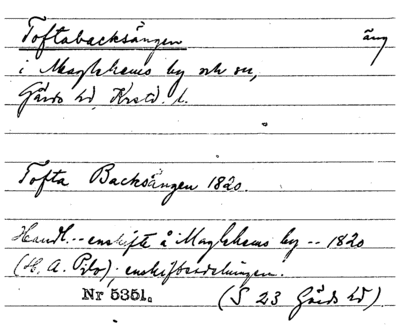 Toftabacksängen äng
i Maglehems by och sn,
Gärds hd, Krstd. l.
Tofta Backsängen 1820.
Handl. -- enskifte å Maglehems by -- 1820
(H. A. Pilo); enskiftesdelningen.
Nr 5351. (S 23 Gärds hd)